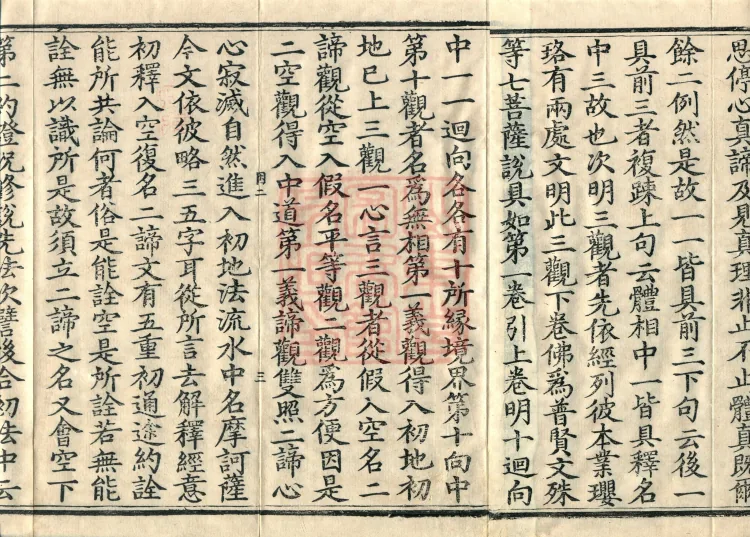 思停心真諦及界真理非止不止體真既爾
餘二例然是故一一皆具前三下句云後一
具前三者複踈上句云體相中一皆具釋名
中三故也次明三觀者先依經列彼本業瓔
珞有兩處文明此三觀下卷佛爲普賢文殊
等七菩薩說具如第一卷引上卷明十迴向
中一一迴向各各有十所縁境界第十向中
第十觀者名爲無相第一義觀得入初地初
地已上三觀一心言三觀者從假入空名二
諦觀從空入假名平等觀二觀爲方便因是
二空觀得入中道第一義諦觀雙照二諦心
心寂滅自然進入初地法流水中名摩訶薩
今文依彼略三五字耳從所言去解釋經意
初釋入空復名二諦文有五重初通塗約詮
能所共論何者俗是能詮空是所詮若無能
詮無以識所是故須立二諦之名又會空下
第二約證說修說先法次譬後合初法中云